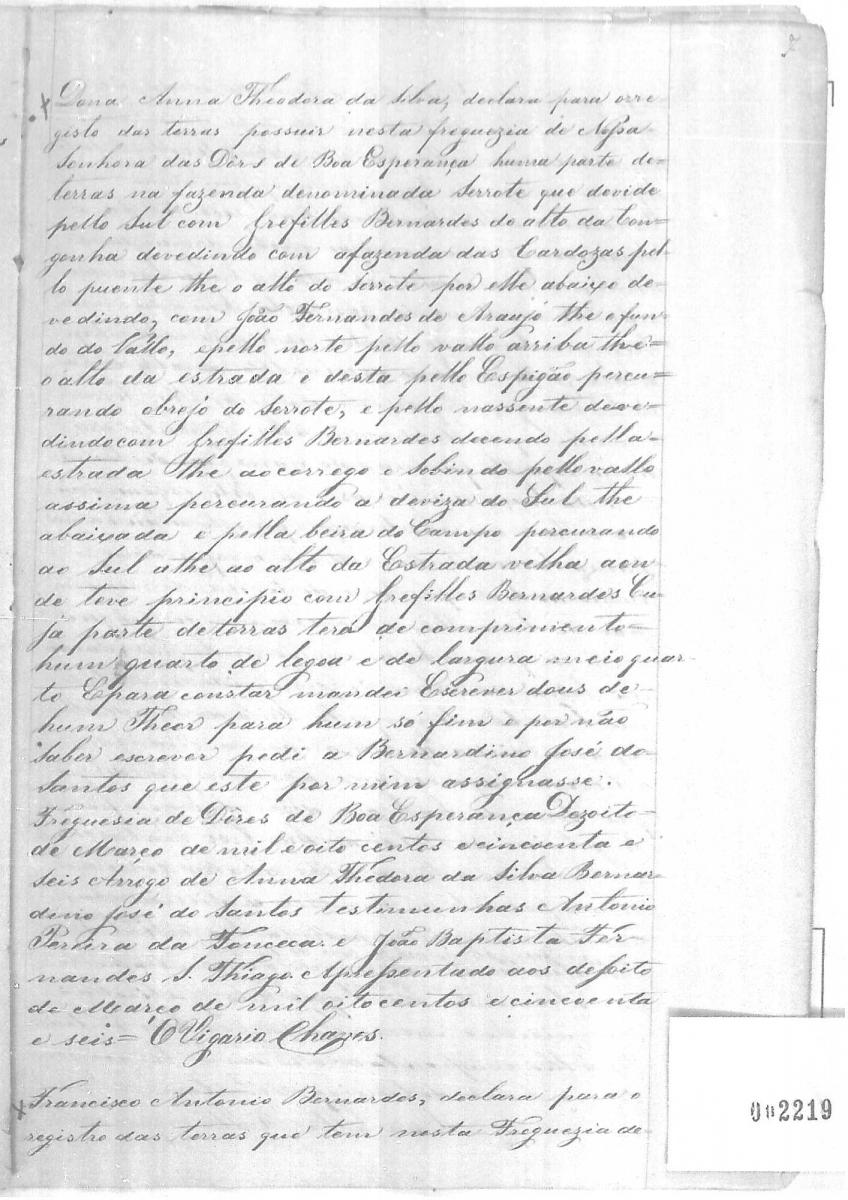 Dona Anna Theodora da Silva, declara para o rre-
gisto das terras possuir nesta freguezia de Nossa
Senhora das Dôrs de Boa Esperança huma parte de=
terras na fazenda denominada Serrote que devide
pello Sul com Grefilles Bernardes do alto da Con=
gonha devedindo com afazenda das Cardozas pel-
lo puente the o alto do Serrote por elle abaixo de-
vedindo, com João Fernandes de Araujo the o fun-
do do Vallo, epello norte pello vallo arriba the=
o alto da estrada e desta pello Espigão percu-
rando obrejo do Serrote, e pello nassente deve-
dindo com Grefilles Bernardes decendo pella-
estrada the ao corrego e Sobindo pello vallo
assima percurando a deviza do Sul the
abaixada e pella beira do Campo percurando
ao Sul athe ao alto da Estrada velha aon-
de teve principio com Grefilles Bernardes Cu-
ja parte de terras terá de comprimento=
hum quarto de legoa e de largura meio quar-
to Epara constar mandei Escrever dous de-
hum Theor para hum só fim e por não
saber escrever pedi a Bernardino José do
Santos que este por mim assignasse.
Freguesia de Dôres de Boa Esperança Dezoito-
de Março de mil e oito centos e cincoenta e
seis Arrogo de Anna Thedora da Silva Bernar-
dino José do Santos testimunhas Antonio
Pereira da Fonceca e João Baptista Fer-
nandes S. Thiago. Apressentado aos desoito
de Março de mil oitocentos e cincoenta
e seis= O Vigario Chaves.
Francisco Antonio Bernardes, declara para o
registro das terras que tem nesta Freguezia de-
002219